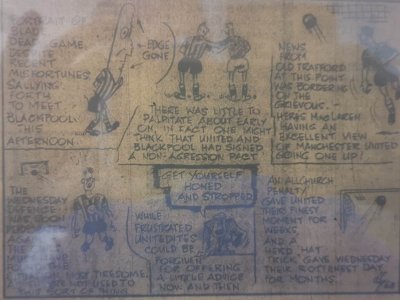 PORTRAIT OF
BLADE
DEAD GAME
DESPITE
RECENT
MISFORTUNES
SALLYING
FORTH
TO MEET
BLACKPOOL
THIS
AFTERNOON
EDGE
GONE
THERE WAS LITTLE TO
PALPITATE ABOUT EARLY
ON, IN FACT ONE MIGHT
THINK THAT UNITED AND
BLACKPOOL HAD SIGNED
A NON-AGRESSION PACT
NEWS
FROM
OLD TRAFFORD
AT THIS POINT
WAS BORDERING
ON THE
GRIEVOUS. -
HERES MACLAREN
HAVING AN
EXCELLENT VIEW
OF MANCHESTER UNITED
GOING ONE UP!
THE
WEDNESDAY
DEFENSE
TIRESOME.
NOT USED TO
SORT OF THING
GET YOURSELF
HONED
AND STROPPED
WHILE
FRUSTRATED
UNITEDITES
COULD BE
FORGIVEN
FOR OFFERING
A LITTLE ADVICE
NOW AND THEN
AN ALLCHURCH
PENALTY
GAVE UNITED
THEIR FINEST
MOMENT FOR
WEEKS,
AND A
HERD HAT
TRICK GAVE WEDNESDAY
THEIR ROTTENEST DAY
FOR MONTHS.